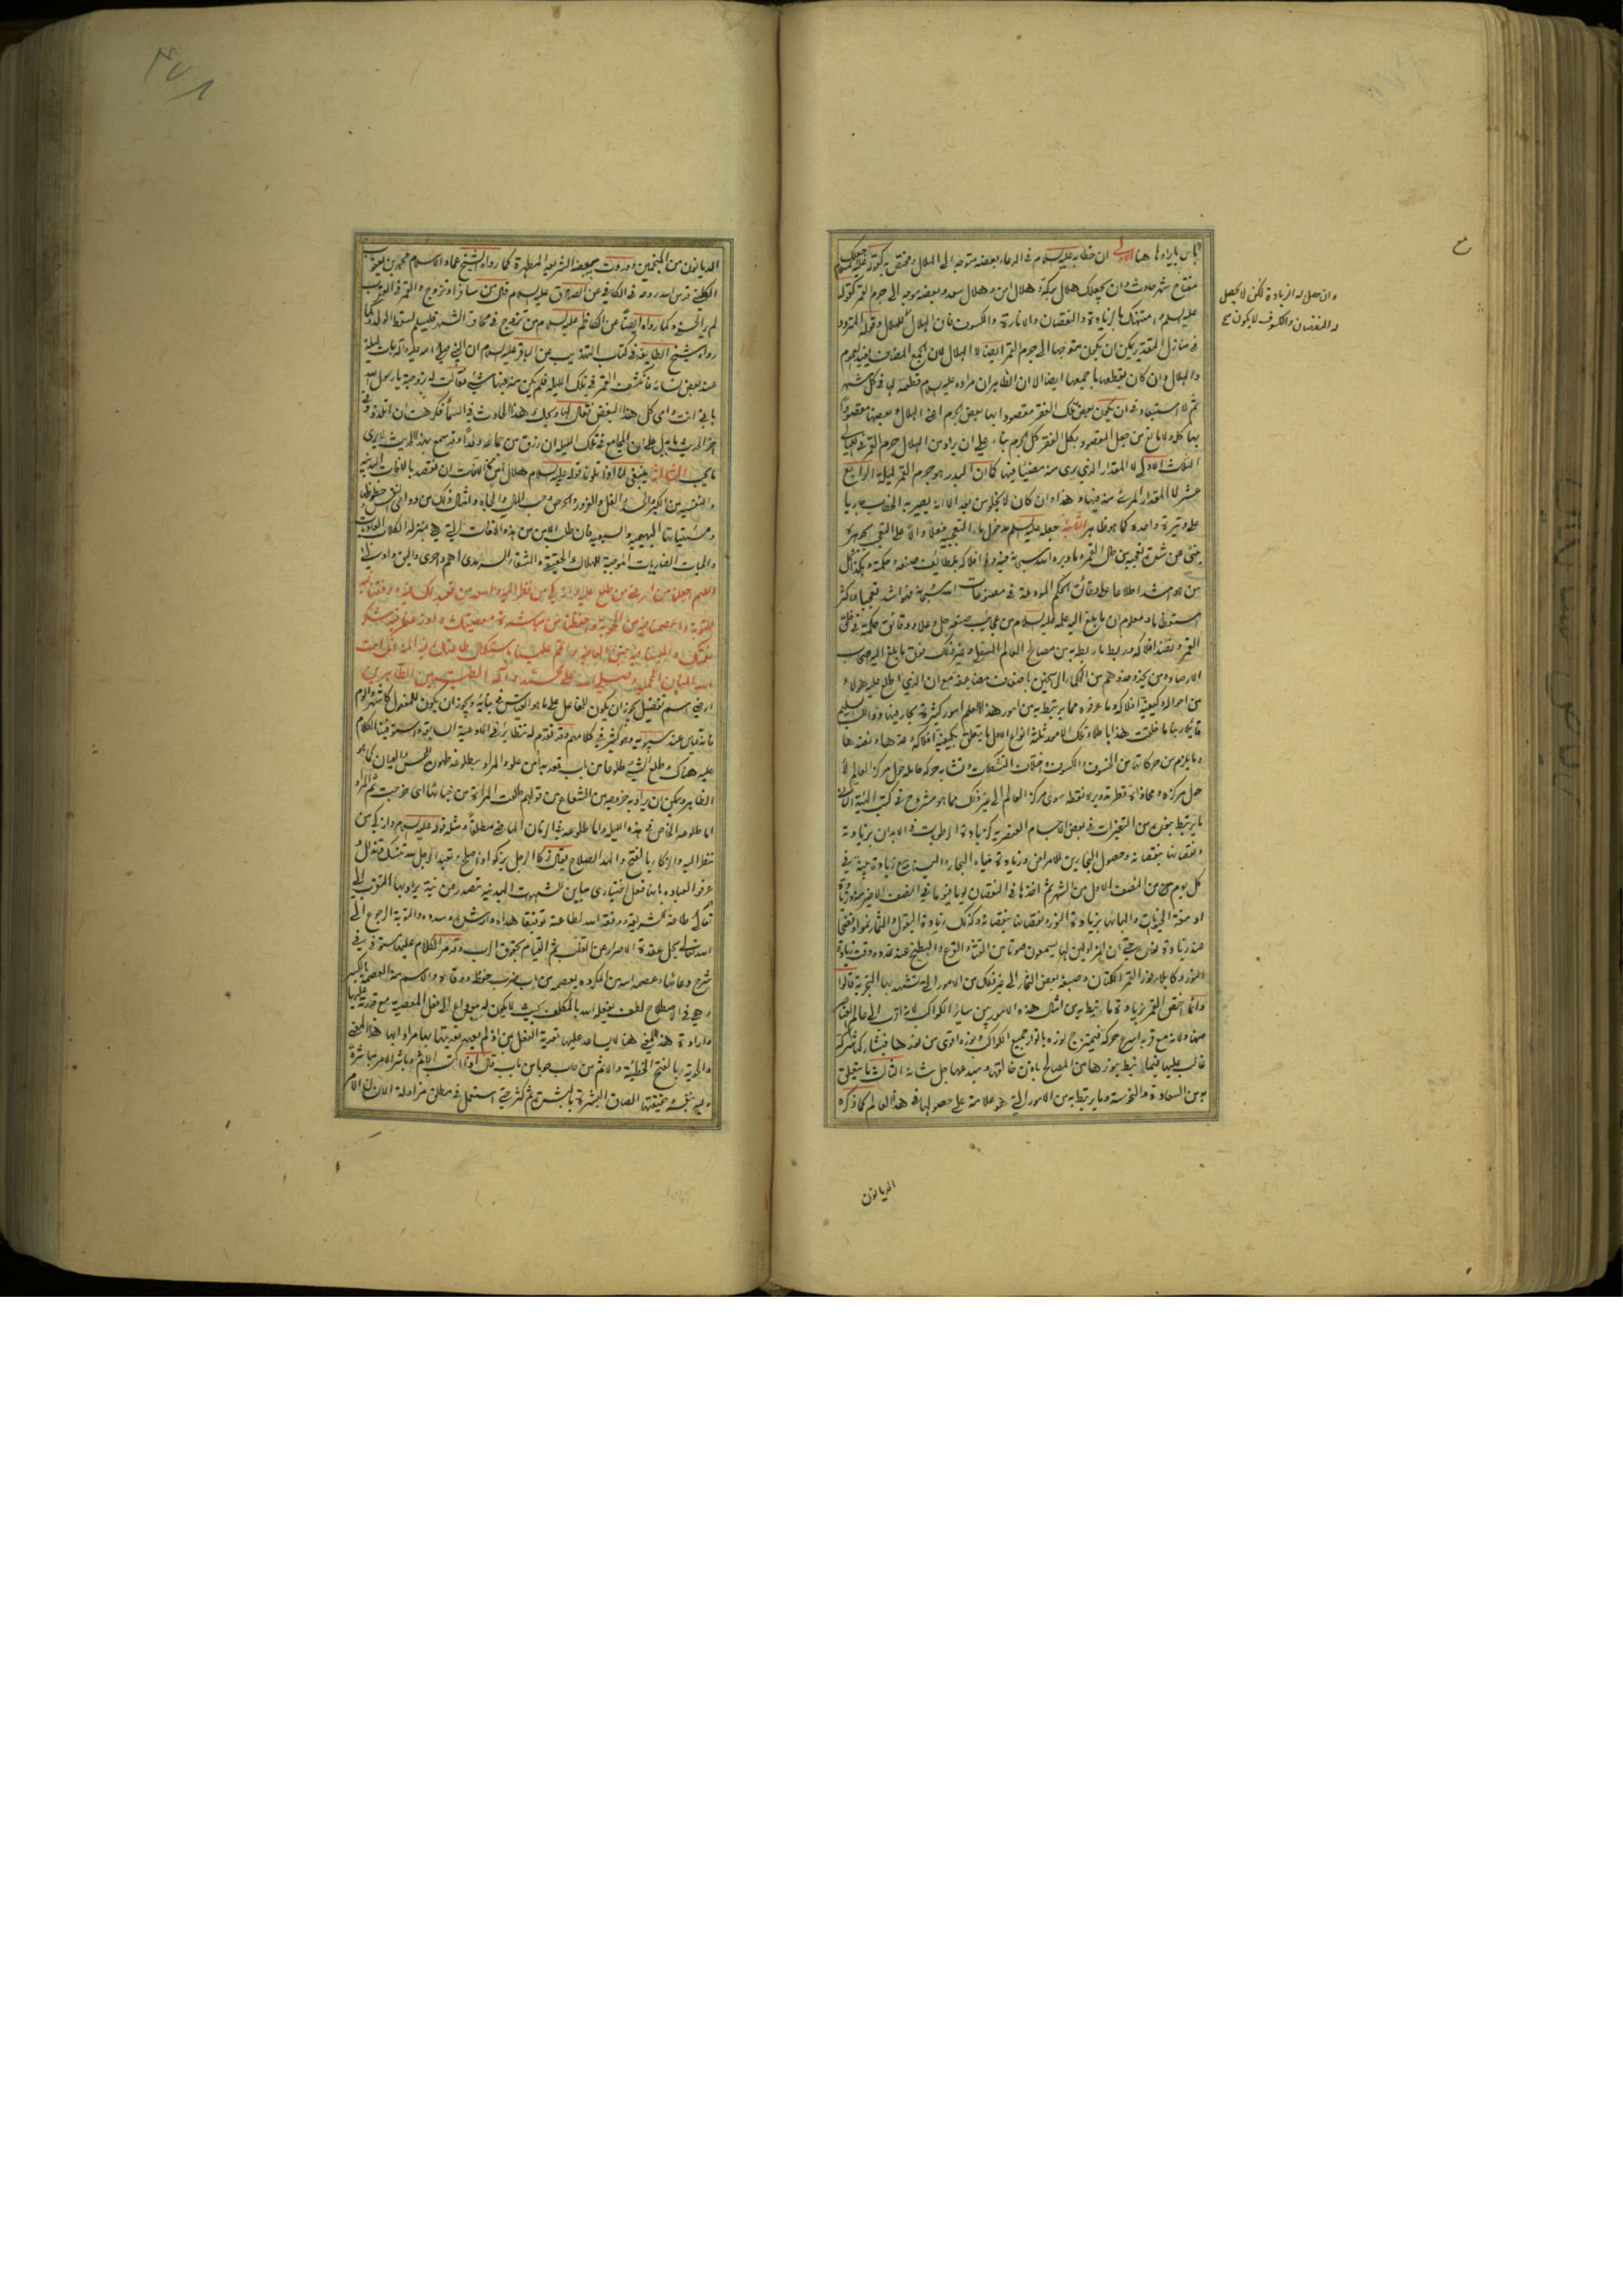 باس بايرادها هنا الاولى ان خطابه عليه السلام في الدعاء بعضه متوجه الى الهلال ومختص به كقوله عليه السلام جعلك
مفتاح شهر حادث وان يجعلك هلال بركة وهلال امن وهلال سعد وبعضه موجه الى جرم القمر كقوله
عليه السلام وامتهنك بالزيادة والنقصان والانارة والكسوف فان الهلال وقوله المتردد
في منازل التقدير يمكن ان يكون متوجها الى جرم القمر ايضا لا الهلال لان الجمع المضاف يفيد العموم
والهلال وان كان يقطعها جميعها ايضا الا ان الظاهر ان مراده عليه السلام قطعه لها في كل شهر
ثم لا استبعاد في ان يكون بعض تلك الفقر مقصودا بها بعض الجرم اعني الهلال وبعضها مقصودا
بها كله ولا مانع من جعل المقصود بكل الفقر كل الجرم بناء على ان يراد من الهلال جرم القمر في الليالي
الثلاث الاول لا المقدار الذي يرى منه مضيئا فيها كما ان البدر هو جرم القمر ليلة الرابع
عشر لا المقدار المرئي منه فيها وهذا وان كان لا يخلو من بعد الا انه يصير به الخطاب جاريا
على وتيرة واحدة كما هو ظاهر الثانية جعله عليه السلام مدخول ما التعجبية فعلا دالا على التعجب بجوهره
ينبئ عن شدة تعجبه من حال القمر وما دبره الله سبحانه فيه وفي افلاكه بلطائف صنعه وحكمته وهكذا كل
من هو اشد اطلاعا على دقائق الحكم المودعة في مصنوعات الله سبحانه فهو اشد تعجبا واكثر
استعظاما ومعلوم ان ما بلغ اليه علمه عليه السلام من عجائب صنعه جل وعلا ودقائق حكمته في خلق
القمر ونضد افلاكه وربط ما ربطه به من مصالح العالم السفلي وغير ذلك فوق ما بلغ اليه اصحاب
الارصاد ومن يحذو حذوهم من الحكماء الراسخين باضعاف مضاعفة مع ان الذي اطلع عليه هؤلاء
من احواله وكيفية افلاكه وما عرفوه مما يرتبط به من امور هذا العالم امور كثيرة يحار فيها ذو اللب السليم
قائلا ربنا ما خلقت هذا باطلا وتلك الامور ثلثة انواع الاول ما يتعلق بكيفية افلاكه وعدها ونضدها
وما يلزم من حركاتها من الخسوف والكسوف واختلاف التشكلات وتشابه حركة حامله حول مركز العالم لا
حول مركزه ومحاذاة قطر تدويره نقطة سوى مركز العالم الى غير ذلك مما هو مشروح في كتب الهيئة الثاني
ما يرتبط بنوره من التغيرات في بعض الاجسام العنصرية كزيادة الرطوبات في الابدان بزيادته
ونقصانها بنقصانه وحصول البحارين للامراض وزيادة مياه البحار والينابيع زيادة بينة في
كل يوم من النصف الاول من الشهر ثم اخذها في النقصان يوما فيوما في النصف الاخير منه وزيادة
ادمغة الحيوانات والبانها بزيادة النور ونقصانها بنقصانه وكذلك زيادة البقول والثمار نموا ونضجا
عند زيادة نوره حتى ان المزاولين لها يسمعون صوتا من القثاء والقرع والبطيخ عند تمدده وقت زيادة
النور وكابلاء نور القمر الكتان وصبغه بعض الثمار الى غير ذلك من الامور التي تشهد بها التجربة قالوا
وانما اختص القمر بزيادة ما نيط به من امثال هذه الامور بين سائر الكواكب لانه اقرب الى عالم العناصر
منها ولانه مع قربه اسرع حركة فيمتزج نوره بانوار جميع الكواكب ونوره اقوى من نورها فيشاركها شركة
غالب عليها فيما نيط بنورها من المصالح باذن خالقها ومبدعها جل شانه الثالث ما يتعلق
به من السعادة والنحوسة وما يرتبط به من الامور التي هو علامة على حصولها في هذا العالم كما ذكره
الديانون
وان حصل له الزيادة لكن لا يحصل
له النقصان والكسوف لا يكون صح
الديانون من المنجمين ووردت ببعضه الشريعة المطهرة كما رواه الشيخ عماد الاسلام محمد بن يعقوب
الكليني قدس الله روحه في الكافي عن الصادق عليه السلام قال من سافر او تزوج والقمر في العقرب
لم ير الحسنى وكما رواه ايضا عن الكاظم عليه السلام من تزوج في محاق الشهر فليسلم لسقط الولد وكما
رواه شيخ الطايفة في كتاب التهذيب عن الباقر عليه السلام ان النبي صلى الله عليه واله بات ليلة
عند بعض نسائه فانكشف القمر في تلك الليلة فلم يكن منه فيها شيء فقالت له زوجته يا رسول الله
بابي انت وامي كل هذا البغض فقال لها ويحك هذا الحادث في السماء فكرهت ان اتلذذ وفي
اخر الحديث ما يدل على ان المجامع في تلك الليلة ان رزق من جماعه ولدا وقد سمع بهذا الحديث لا يرى
ما يحب الثالثة ينبغي لنا اذا تلونا قوله عليه السلام هلال امن من الافات ان نقصد بالافات البدنية
والنفسية من الكبر والحسد والغل والغرور والحرص وحب المال والجاه وامثال ذلك من دواعي النفس وحظوظها
ومشتهياتها البهيمية والسبعية فان طلب الامن من هذه الافات التي هي بمنزلة الكلاب العاويات
والحيات الضاريات الموجبة للهلاك الحقيقي والشقاء السرمدي اهم واحرى واليق واولى
اللهم اجعلنا من ارضى من طلع عليه وازكى من نظر اليه واسعد من تعبد لك فيه ووفقنا فيه
للتوبة واعصمنا فيه من الحوبة واحفظنا من مباشرة معصيتك واوزعنا فيه شكر
نعمتك والبسنا فيه جنن العافية واتمم علينا باستكمال طاعتك فيه المنة انك انت
الله المنان الحميد وصلى الله على محمد واله الطيبين الطاهرين
ارضى اسم تفضيل يجوز ان يكون للفاعل على ما هو القياس في بنائه ويجوز ان يكون للمفعول كاشهر والوم
فانه قياس عند سيبويه وهو كثير في كلامهم وقد تقدم له نظاير في الادعية السابقة واستوفينا الكلام
عليه هناك وطلع الشيء طلوعا من باب قعد بدا من علو والمراد بطلوعه ظهوره للحس والعيان كما هو
الظاهر ويمكن ان يراد به خروجه من الشعاع من قولهم طلعت المراة من خبائها اي خرجت ثم المراد
اما طلوعه الخاص في هذه الليلة واما طلوعه في الزمان الماضي مطلقا ومثله قوله عليه السلام وازكى من
نظر اليه والزكاء بالفتح والمد الصلاح يقال زكا الرجل يزكو اذا صلح وتعبد الرجل لله تنسك وتذلل
عرفوا العبادة بانها فعل اختياري مباين للشهوات البدنية تصدر عن نية يراد بها التقرب الى الله
تعالى طاعة للشريعة ووفقه الله لطاعته توفيقا هداه وارشده وسدده والتوبة الرجوع الى
الله تعالى بحل عقدة الاصرار عن القلب ثم القيام بحقوق الرب وقد مر الكلام عليها مستوفى في
شرح دعائها وعصمه الله من المكروه يعصمه من باب ضرب حفظه ووقاه والاسم منه العصمة بالكسر
وهي في الاصطلاح لطف يفعله الله بالمكلف بحيث لا يكون له داع الى فعل المعصية مع قدرته عليها
وارادة هذا المعنى هنا لا يساعد عليها تعدية الفعل بمن اذ لم يعهد تعديتها بها مرادا بها هذا المعنى
والحوبة بالفتح الخطيئة والاثم من حاب حوبا من باب قال اذا اكتسب الاثم وباشر الامر مباشرة
وليه بنفسه وحقيقتها الصاق البشرة بالبشرة ثم كثر حتى استعمل في مطلق مزاولة الانسان الامر